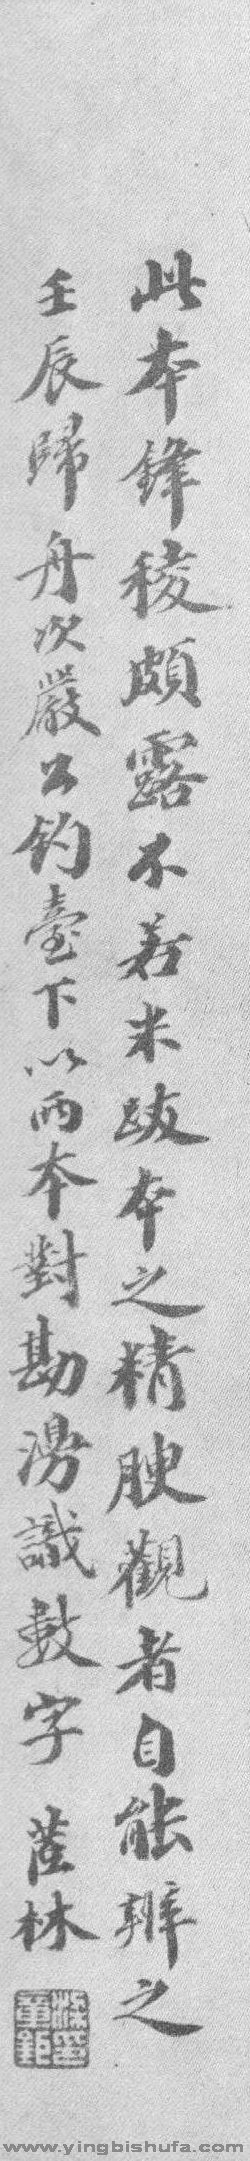 此本鋒稜頗露不若米跋本之精腴觀者自能辨之
壬辰歸舟次嚴公釣臺下以兩本對勘漫識數字 茝林
www.yingbishufa.com